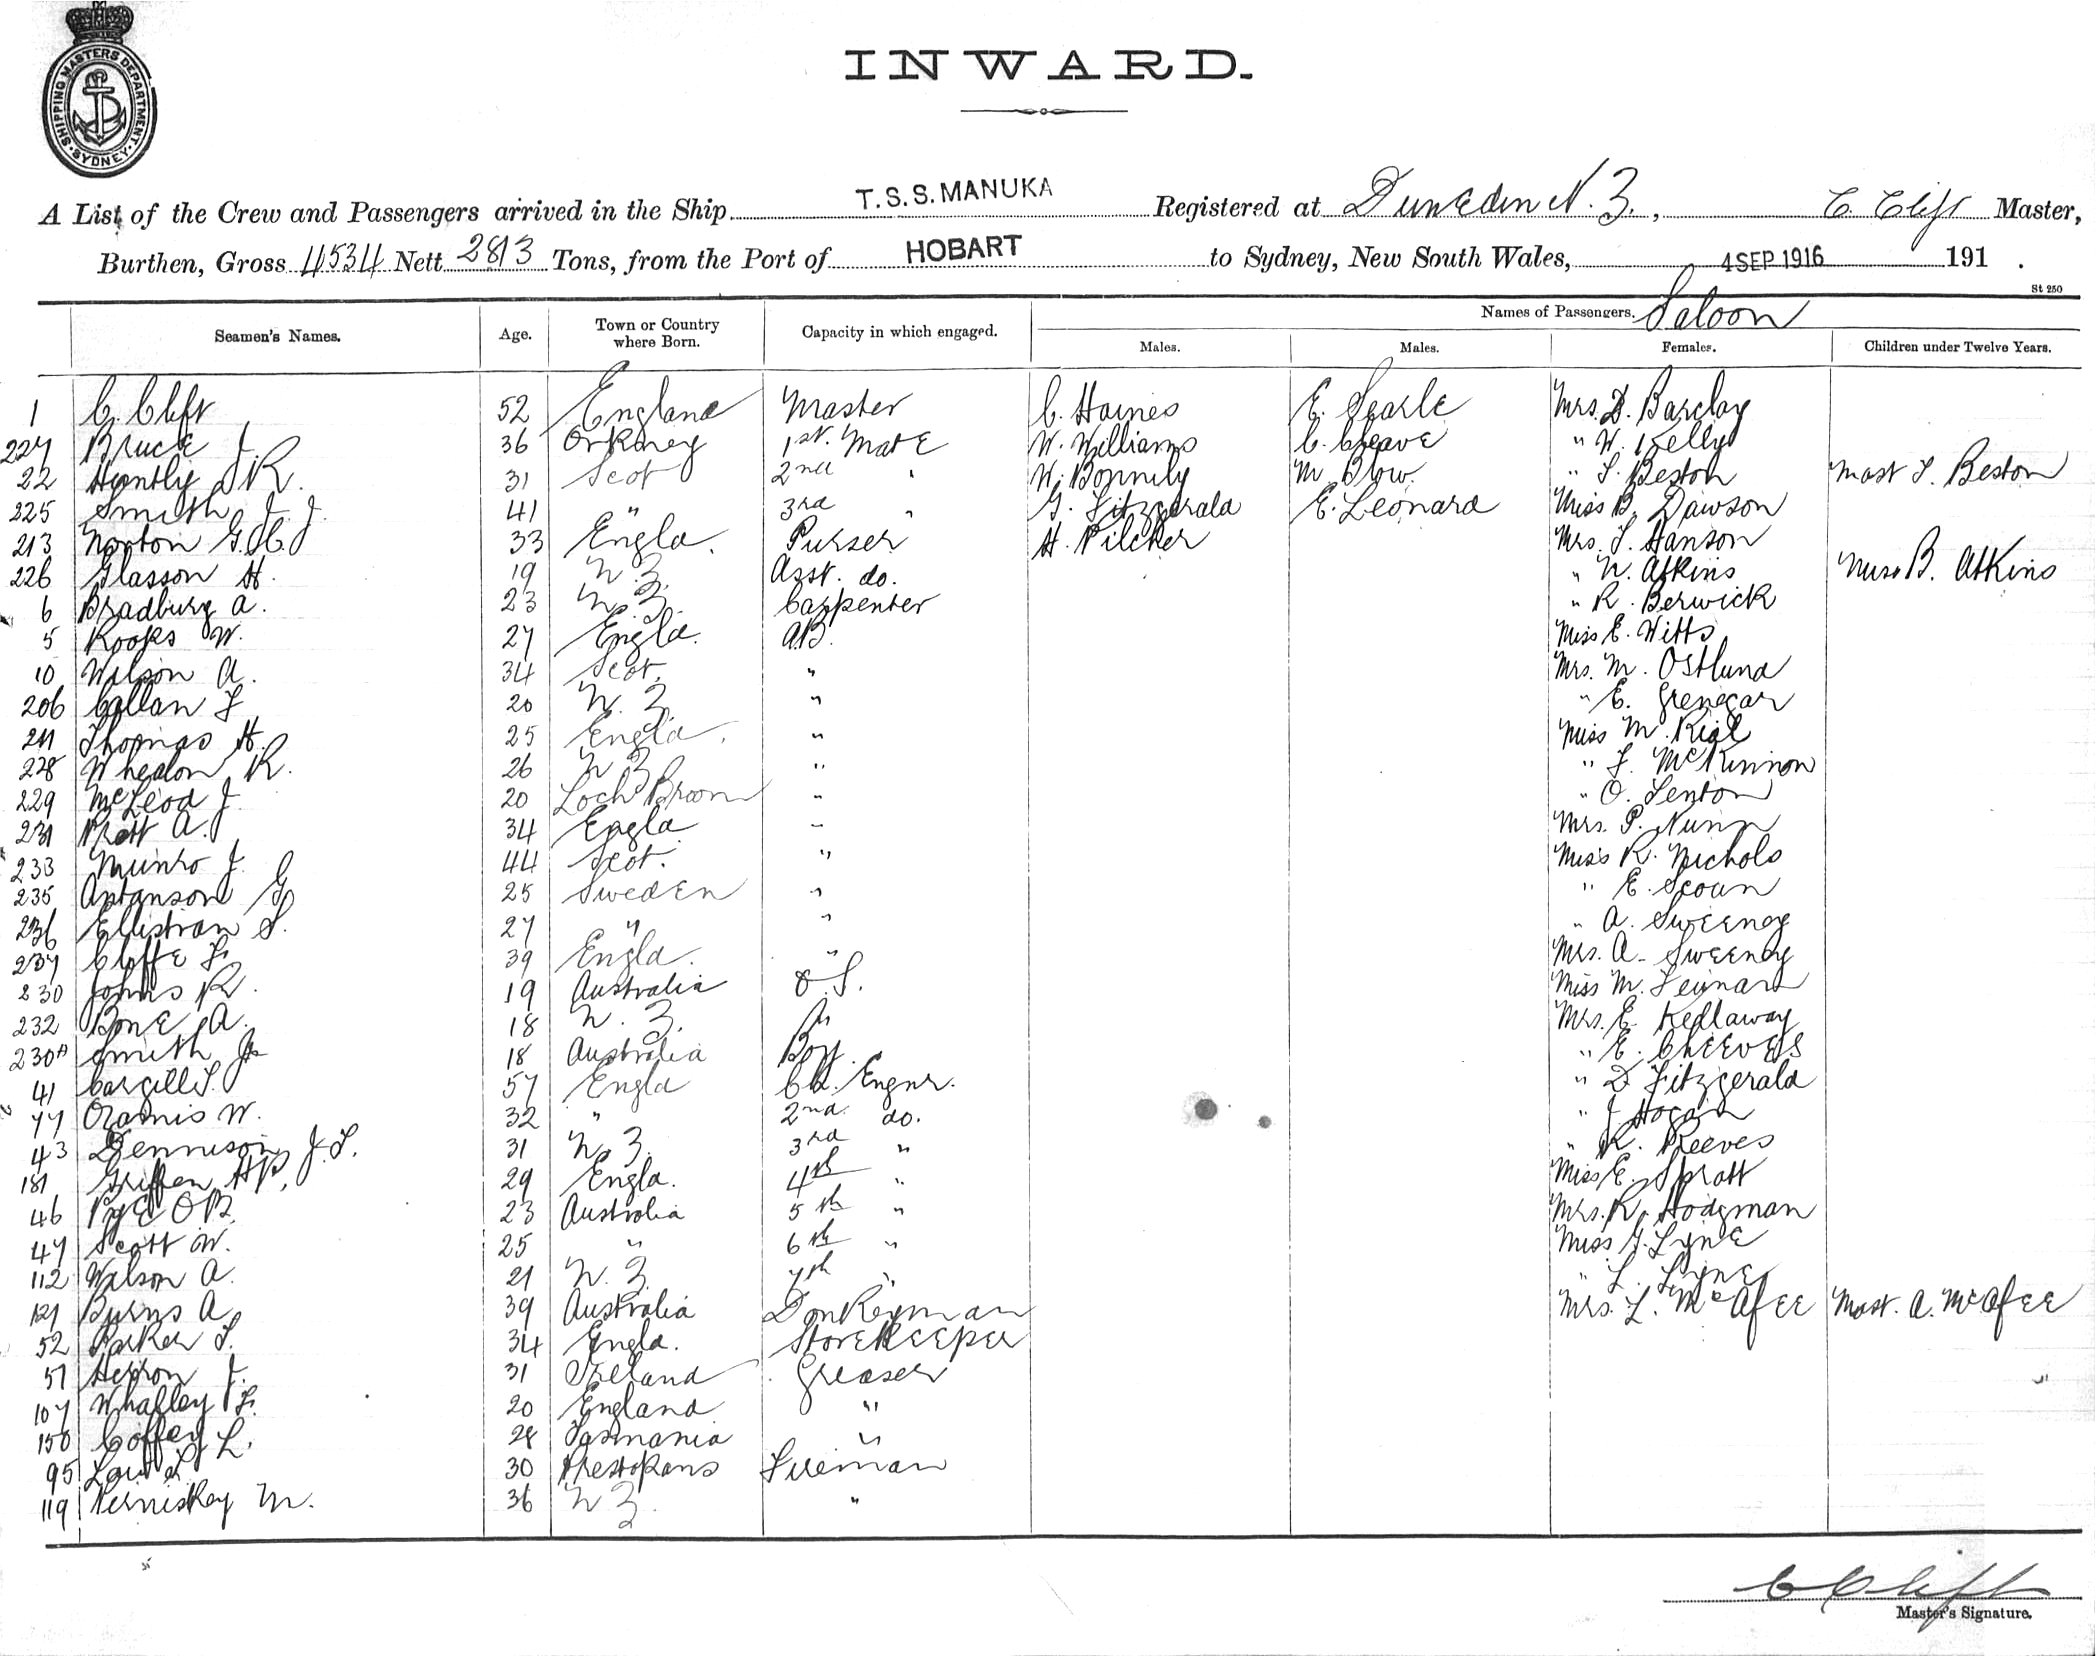 SHIPPING MASTERS DEPARTMENT. SYDNEY
INWARD.
A List of the Crew and Passengers arrived in the Ship T.S.S. MANUKA Registered at Dunedin N.Z., C. Clift Master,
Burthen, Gross 4534 Nett 2813 Tons, from the Port of HOBART to Sydney, New South Wales, 4 SEP 1916 191 .
St 250
Names of Passengers. Saloon
Seamen's Names. Age. Town or Country where Born. Capacity in which engaged. Males. Males. Females. Children under Twelve Years.
1 C. Clift 52 England Master C. Haines E. Searle Mrs. D. Barclay
227 Bruce J. 36 Orkney 1st. Mate W. Williams C. Cleave " W. Kelly
22 Huntly J R. 31 Scot 2nd " W. Bonnily M Blow. " L. Beston Mast L. Beston
225 Smith J. J. 41 " 3rd " G. Fitzgerald E. Leonard Miss B. Dawson
213 Norton G. H. J 33 Engla. Purser H. Pilcher Mrs. L. Hanson
226 Glasson H. 19 N.Z. Asst. do. " N. Atkins Miss B. Atkins
6 Bradbury A. 23 N.Z. Carpenter " R. Berwick
5 Rooks W. 27 Engla. A.B. Miss E. Witts
10 Wilson A. 34 Scot. " Mrs. M. Ostlund
206 Callan F 20 N. Z " " E. Grenegar
211 Thomas H. 25 Engla. " Miss M. Rial
228 Whealon R. 26 N Z " " F. McKinnon
229 McLeod J. 20 Loch Broom " " O. Lenton
231 Pratt A. 34 Engla " Mrs. P. Nunn
233 Munro J. 44 Scot. " Miss R. Nichols
235 Antanson G 25 Sweden " " E. Scoan
236 Ellistran S. 27 " " " A. Sweeney
237 Cloffe F. 39 Engla. " Mrs. A. Sweeney
230 Johns R. 19 Australia O.S. Miss M. Lennard
232 Bone A. 18 N. Z. " Mrs. E. Kellaway
230A Smith J. 18 Australia Boy. " E. Cheevers
41 Cargill J. 57 Engla Ch. Engnr. " D Fitzgerald
77 Oramis W. 32 " 2nd do. " J Hogan
43 Dennison J. L. 31 N. Z. 3rd " " K. Reeves
181 Griffen H P. 29 Engla. 4th " Miss E. Spratt
46 Pye O B. 23 Australia 5th " Mrs. R. Hodgman
47 Scott W. 25 " 6th " Miss G. Lyne
112 Wilson A. 21 N. Z. 7th " " L. Lyne
121 Burns A. 39 Australia Donkeyman Mrs. L. McAfee Mast. A. McAfee
52 Parker L. 34 Engla. Storekeeper
51 Herron J. 31 Ireland Greaser
107 Whalley F. 20 England "
150 Coffey L. 28 Tasmania "
95 30 Prestopans Fireman
119 Kerniskey M. 36 N Z. "
C Clift
Master's Signature.